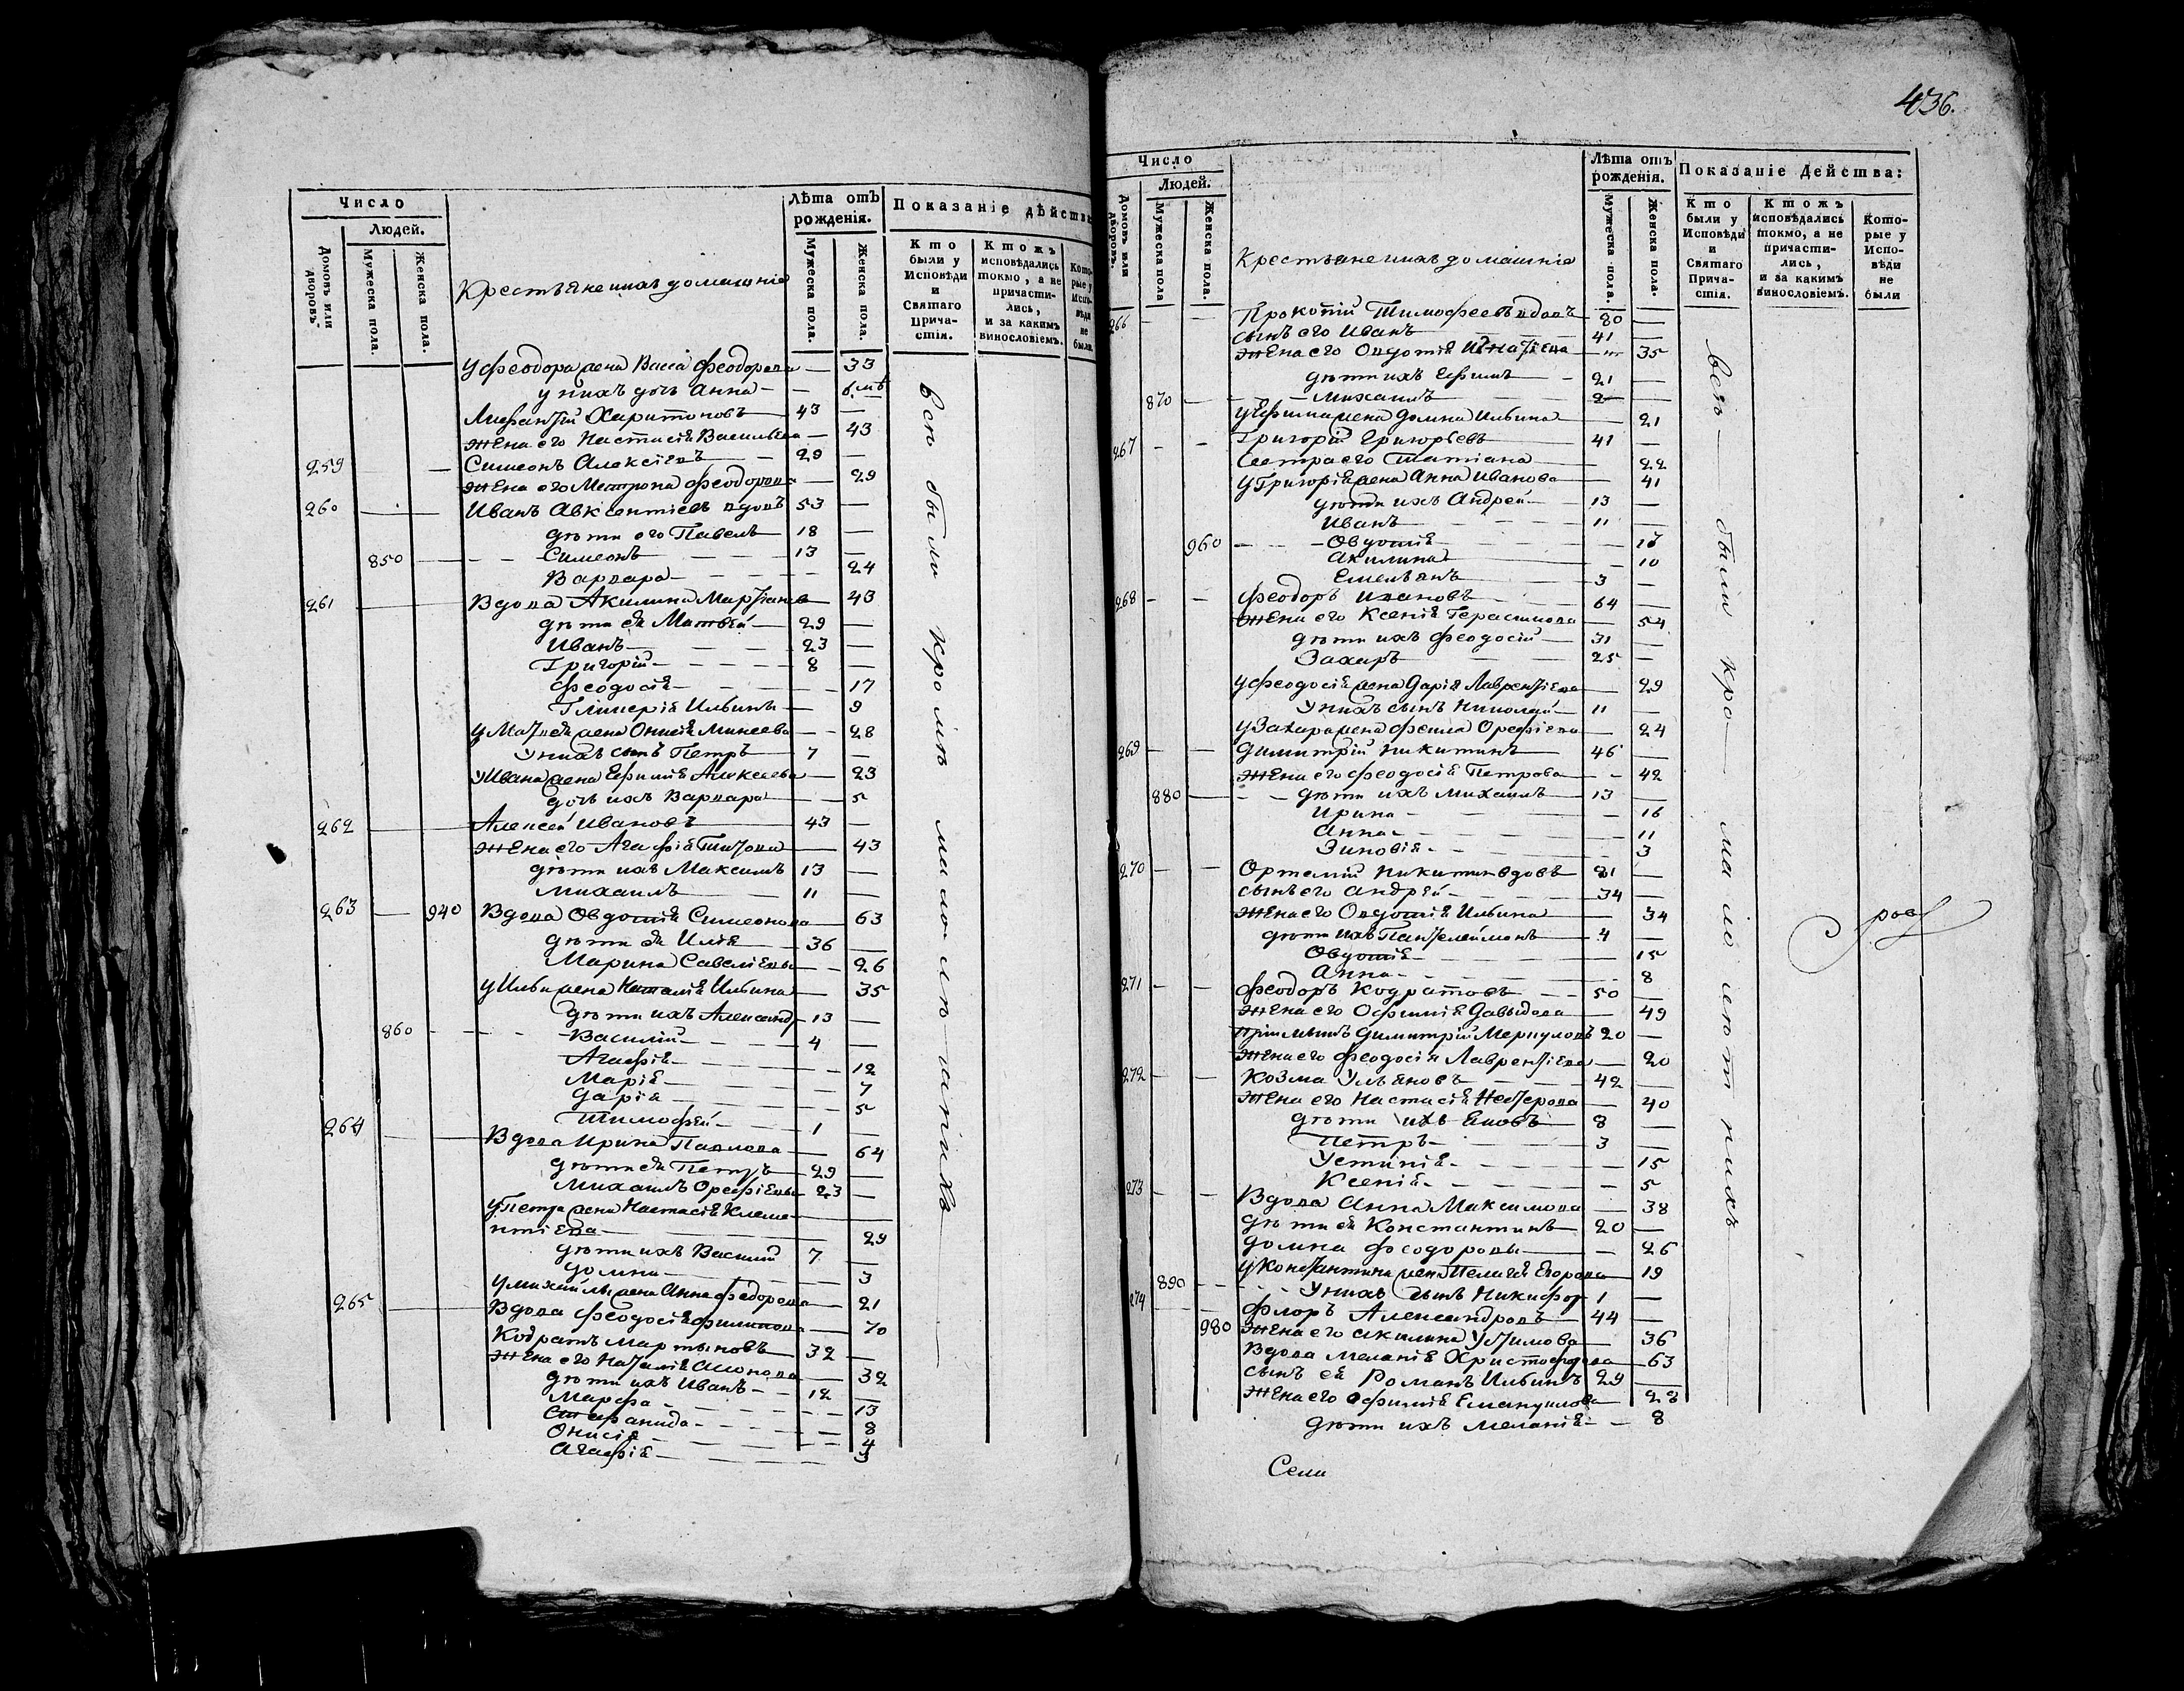 Число
Людей.
Домовъ или дворовъ.
Мужеска пола.
Женска пола.
Крестьяне и ихъ домашніе
Лѣта отъ рожденія.
Мужеска пола.
Женска пола.
Показаніе дѣйств
Кто были у Исповѣди и Святаго Прича-стія.
Ктожъ исповѣдались токмо, а не причасти-лись, и за какимъ винословіемъ.
Кото-рые у Испо-вѣди не были
У Феодора жена Васса Феодорова 33
у нихъ дочь Анна 6 мѣ
Харитоновъ 43
Жена его Настасія Васильева 43
259 Симеонъ Алексіевъ 29
Жена его Матрона Феодорова 29
260 Иванъ Авксентіевъ вдовъ 53
дѣти его Павелъ 18
850 Симеонъ 13
Варвара 24
261 Вдова Акилина Мартінова 43
дѣти ея Матвей 29
Иванъ 23
Григорій 8
Феодосія 17
Гликерія Ильины 9
у Матвея жена Онисія Минеева 28
у нихъ сынъ Петръ 7
у Ивана жена Ефимія Алексеева 23
дочь ихъ Варвара 5
262 Алексей Ивановъ 43
Жена его Агафія Титова 43
дѣти ихъ Максимъ 13
Михаилъ 11
263 940 Вдова Овдотія Симеонова 63
дѣти ея Илія 36
Марина Савеліевы 26
у Ильи жена Наталія Ильина 35
дѣти ихъ Александ 13
860 Василій 4
Агафія 12
Марія 7
Дарія 5
Тимофей 1
264 Вдова Ирина Павлова 64
дѣти ея Петръ 29
Михаилъ Орефіевы 23
у Петра жена Настасія Климе-
нтіева 29
дѣти ихъ Василій 7
Домна 3
у Михайлы жена Анна Федорова 21
265 Вдова Феодосія Филипова 70
Кодратъ Мартыновъ 32
Жена его Наталія 32
дѣти ихъ Иванъ 12
Марфа 13
Стефанида 8
Онисія 4
Агафія 3
всѣ были кромѣ малолѣтнихъ
436.
Число
Людей.
Домовъ или дворовъ.
Мужеска пола
Женска пола.
Крестьяне и ихъ домашніе
Лѣта отъ рожденія.
Мужеска пола.
Женска пола.
Показаніе Действа:
Кто были у Исповѣди и Святаго Прича-стія.
Ктожъ исповѣдались токмо, а не причасти-лись, и за какимъ винословіемъ.
Кото-рые у Испо-вѣди не были
266 Прокопій Тимофеевъ вдовъ 80
сынъ его Иванъ 41
Жена его Овдотія Игнатіева 35
дѣти ихъ Ефимъ 21
870 Михаилъ 2
у Ефима жена Домна Ильина 21
267 Григорій Григорьевъ 41
Сестра его Татіана 22
у Григорія жена Анна Иванова 41
дѣти ихъ Андрей 13
Иванъ 11
960 Овдотія
Акилина 10
Емельянъ 3
268 Феодоръ Ивановъ 64
Жена его Ксенія Герасимова 54
дѣти ихъ Феодосій 31
Захаръ 25
у Феодосія жена Дарія Лаврентіева 29
у нихъ сынъ Николай 11
у Захара жена Фекла Орефіева 24
269 Димитрій Никитинъ 46
Жена его Феодосія Петрова 42
880 дѣти ихъ Михаилъ 13
Ирина 16
Анна 11
Зиновія 3
270 Ортемій Никитин вдовъ
сынъ его Андрей 34
Жена его Овдотія Ильина 34
дѣти ихъ Пантелеймонъ 4
Овдотія 15
Анна 8
271 Феодоръ Кодратовъ 50
Жена его Офимія Давыдова 49
Димитрій Меркуловъ 20
Жена его Феодосія Лаврентіева 20
272 Козма Ульяновъ 42
Жена его Настасія Нестерова 40
дѣти ихъ Яковъ 8
Петръ 3
Устинія 15
Ксенія 5
273 Вдова Анна Максимова 38
дѣти ея Константинъ 20
Домна Феодоровы 26
у Константина жена Пелагея Егорова 19
890 у нихъ сынъ Никифор 1
274 Флоръ Александровъ 44
980 Жена его Акилина Устимова 36
Вдова Меланія Христофорова 63
сынъ ея Романъ Ильинъ 29
Жена его Офимія Емануилова 28
дѣти ихъ Меланія 8
всѣ были кромѣ малолѣтнихъ
Села